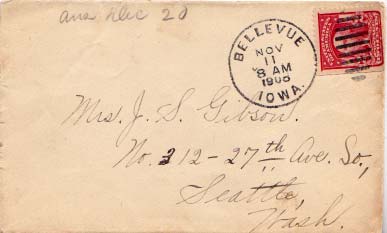 ans Dec 20
BELLEVUE
NOV
11
8 AM
1908
IOWA.
Mrs. J. S. Gibson.
No. 312-27th Ave. So.,
Seattle,
Wash.